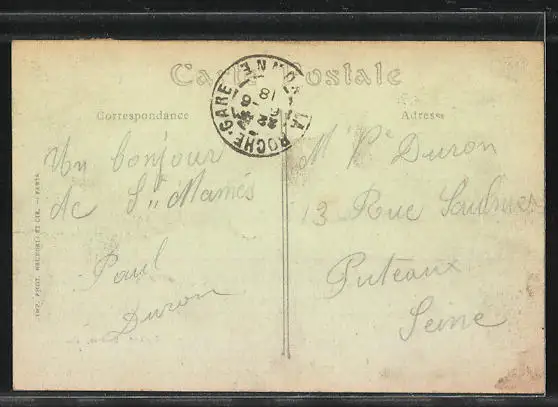 Carte Postale
Correspondance
Adresse
LA ROCHE-GARE
YONNE
18
6
22
Un bonjour
de St Mamès
Paul
Duron
M Duron
13 Rue Saulnier
Puteaux
Seine
IMP. PHOT. NEURDEIN ET CIE. — PARIS